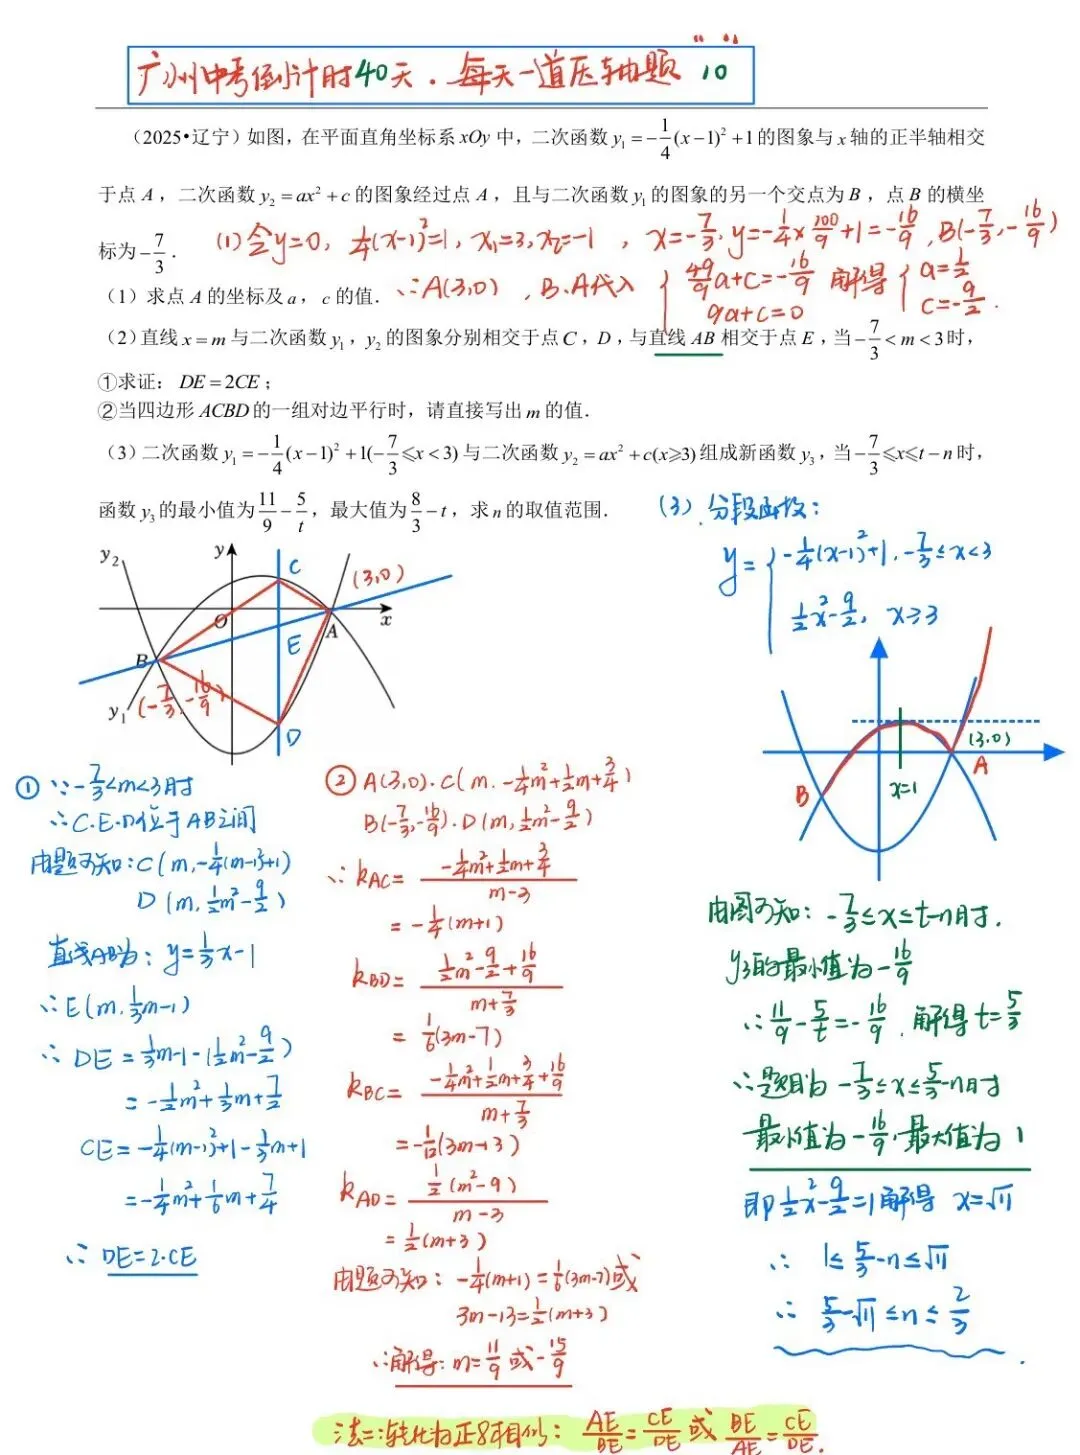 广州中考倒计时40天.每天一道压轴题"10"
(2025•辽宁)如图,在平面直角坐标系xOy中,二次函数y₁=-1/4(x-1)²+1的图象与x轴的正半轴相交
于点A,二次函数y₂=ax²+c的图象经过点A,且与二次函数y₁的图象的另一个交点为B,点B的横坐
标为-7/3.
(1)令y=0, 1/4(x-1)²=1, x₁=3,x₂=-1, x=-7/3, y=-1/4×100/9+1=-16/9, B(-7/3,-16/9)
(1)求点A的坐标及a,c的值.
∴A(3,0), B.A代入 { 49/9a+c=-16/9 9a+c=0 解得 { a=1/2 c=-9/2.
(2)直线x=m与二次函数y₁,y₂的图象分别相交于点C,D,与直线AB相交于点E,当-7/3<m<3时,
①求证:DE=2CE;
②当四边形ACBD的一组对边平行时,请直接写出m的值.
(3)二次函数y₁=-1/4(x-1)²+1(-7/3≤x<3)与二次函数y₂=ax²+c(x≥3)组成新函数y₃,当-7/3≤x≤t-n时,
函数y₃的最小值为11/9-5/t,最大值为8/3-t,求n的取值范围.
y₂
y
C
(3,0)
O
x
E
A
B
y₁
(-7/3,-16/9)
D
① ∵-7/3<m<3时
∴C.E.D位于AB之间
由题可知:C(m,-1/4(m-1)²+1)
D(m,1/2m²-9/2)
直线AB为:y=1/3x-1
∴E(m,1/3m-1)
∴DE=1/3m-1-(1/2m²-9/2)
=-1/2m²+1/3m+7/2
CE=-1/4(m-1)²+1-1/3m+1
=-1/4m²+1/6m+7/4
∴DE=2·CE
② A(3,0).C(m.-1/4m²+1/2m+3/4)
B(-7/3,-16/9).D(m,1/2m²-9/2)
∴kAC=(-1/4m²+1/2m+3/4)/(m-3)
=-1/4(m+1)
kBD=(1/2m²-9/2+16/9)/(m+7/3)
=1/6(3m-7)
kBC=(-1/4m²+1/2m+3/4+16/9)/(m+7/3)
=-1/12(3m-13)
kAD=(1/2(m²-9))/(m-3)
=1/2(m+3)
由题可知:-1/4(m+1)=1/6(3m-7)或
3m-13=1/2(m+3)
∴解得:m=11/9或-15/9
法二:转化为正8相似:AE/BE=CE/DE或BE/AE=CE/DE.
(3).分段函数:
y={ -1/4(x-1)²+1,-7/3≤x<3
1/2x²-9/2, x≥3
(3,0)
A
B
x=1
由图可知:-7/3≤x≤t-n时.
y₃的最小值为-16/9
∴11/9-5/t=-16/9.解得t=5/3
∴题目为-7/3≤x≤5/3-n时
最小值为-16/9,最大值为1
即1/2x²-9/2=1解得 x=√11
∴ 1≤5/3-n≤√11
∴ 5/3-√11≤n≤2/3